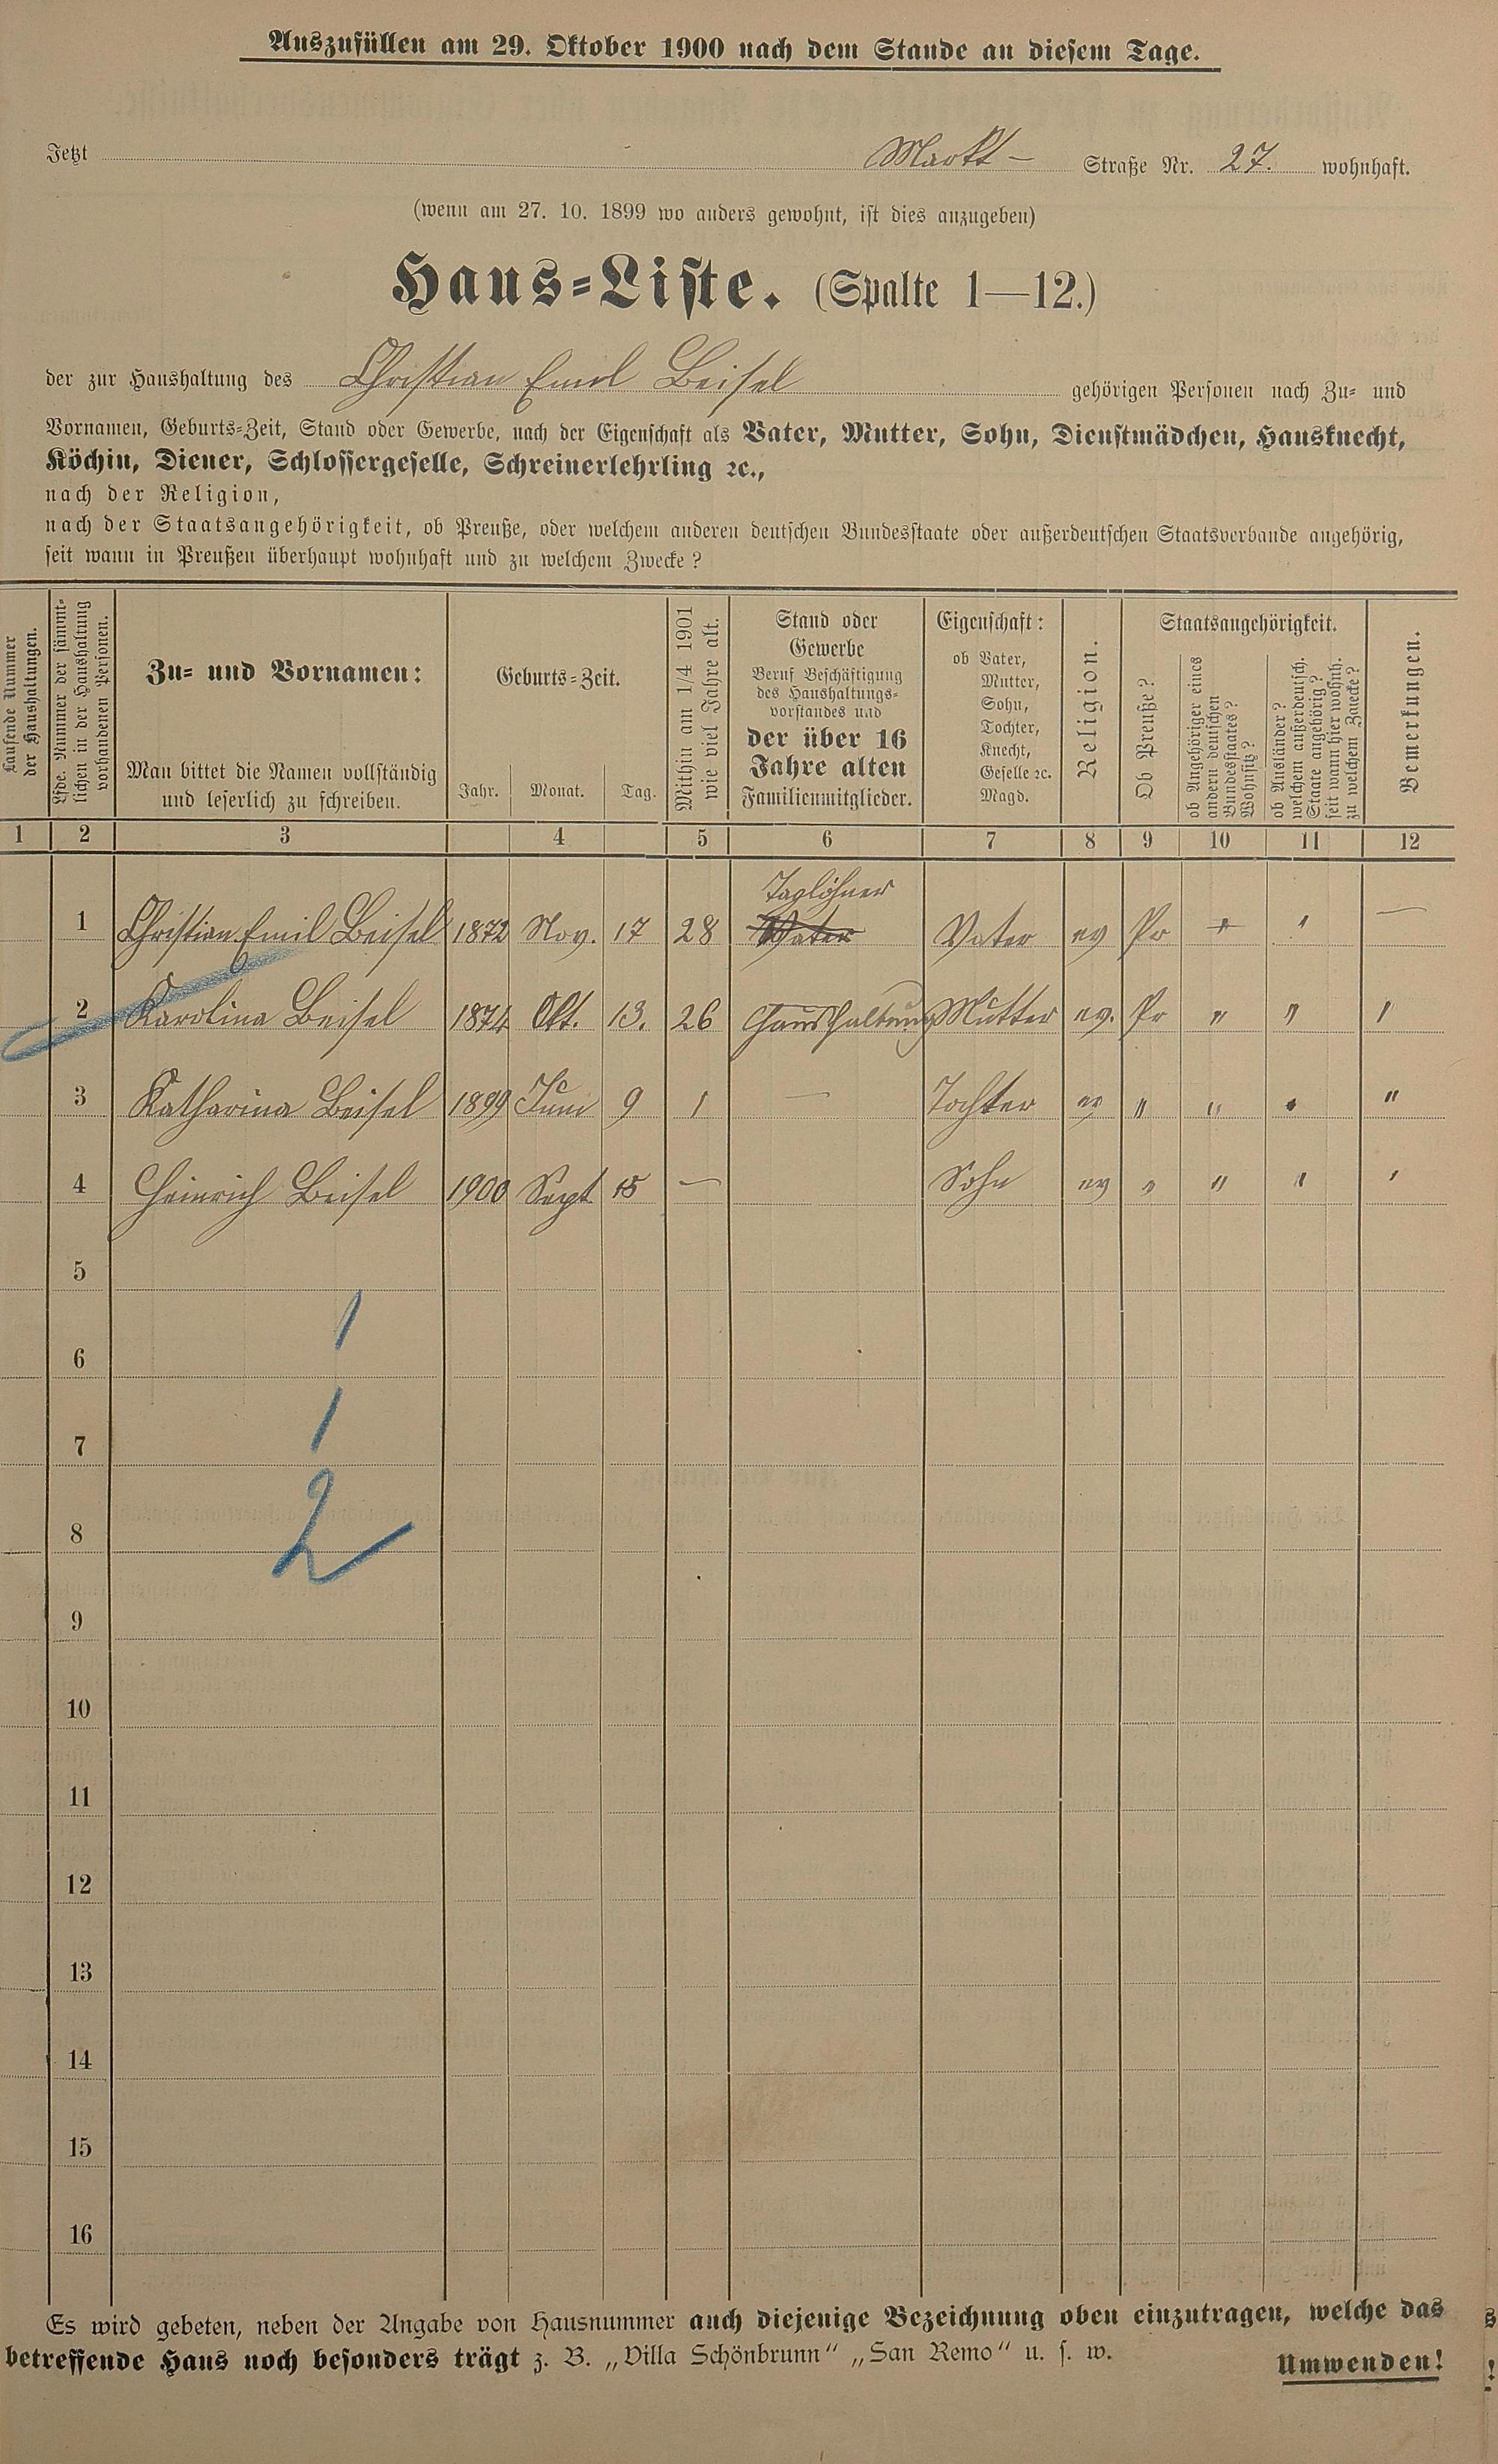 Auszufüllen am 29. Oktober 1900 nach dem Stande an diesem Tage.
Jetzt Markt- Straße Nr. 27. wohnhaft.
(wenn am 27. 10. 1899 wo anders gewohnt, ist dies anzugeben)
Haus-Liste. (Spalte 1—12.)
der zur Haushaltung des Christian Emil Beisel gehörigen Personen nach Zu- und
Vornamen, Geburts-Zeit, Stand oder Gewerbe, nach der Eigenschaft als Vater, Mutter, Sohn, Dienstmädchen, Hausknecht,
Köchin, Diener, Schlossergeselle, Schreinerlehrling ꝛc.,
nach der Religion,
nach der Staatsangehörigkeit, ob Preuße, oder welchem anderen deutschen Bundesstaate oder außerdeutschen Staatsverbande angehörig,
seit wann in Preußen überhaupt wohnhaft und zu welchem Zwecke?
Laufende Nummer
der Haushaltungen.
Lfde. Nummer der sämmt-
lichen in der Haushaltung
vorhandenen Personen.
Zu- und Vornamen:
Man bittet die Namen vollständig
und leserlich zu schreiben.
Geburts-Zeit.
Jahr. Monat. Tag.
Mithin am 1/4 1901
wie viel Jahre alt.
Stand oder
Gewerbe
Beruf Beschäftigung
des Haushaltungs-
vorstandes und
der über 16
Jahre alten
Familienmitglieder.
Eigenschaft:
ob Vater,
Mutter,
Sohn,
Tochter,
Knecht,
Geselle ꝛc.
Magd.
Religion.
Staatsangehörigkeit.
Ob Preuße?
ob Angehöriger eines
andern deutschen
Bundesstaates?
Wohnsitz?
ob Ausländer?
welchem außerdeutsch.
Staate angehörig?
seit wann hier wohnh.
zu welchem Zwecke?
Bemerkungen.
1 2 3 4 5 6 7 8 9 10 11 12
Taglöhner
1 Christian Emil Beisel 1872 Nov. 17 28 Vater Vater ev Pr " " —
2 Karolina Beisel 1874 Okt. 13. 26 Haushaltung Mutter ev. Pr " " "
3 Katharina Beisel 1899 Juni 9 1 — Tochter ev " " " "
4 Heinrich Beisel 1900 Sept 15 — Sohn ev " " " "
5
1
6
1
7
2
8
9
10
11
12
13
14
15
16
Es wird gebeten, neben der Angabe von Hausnummer auch diejenige Bezeichnung oben einzutragen, welche das
betreffende Haus noch besonders trägt z. B. „Villa Schönbrunn“ „San Remo“ u. s. w.
Umwenden!